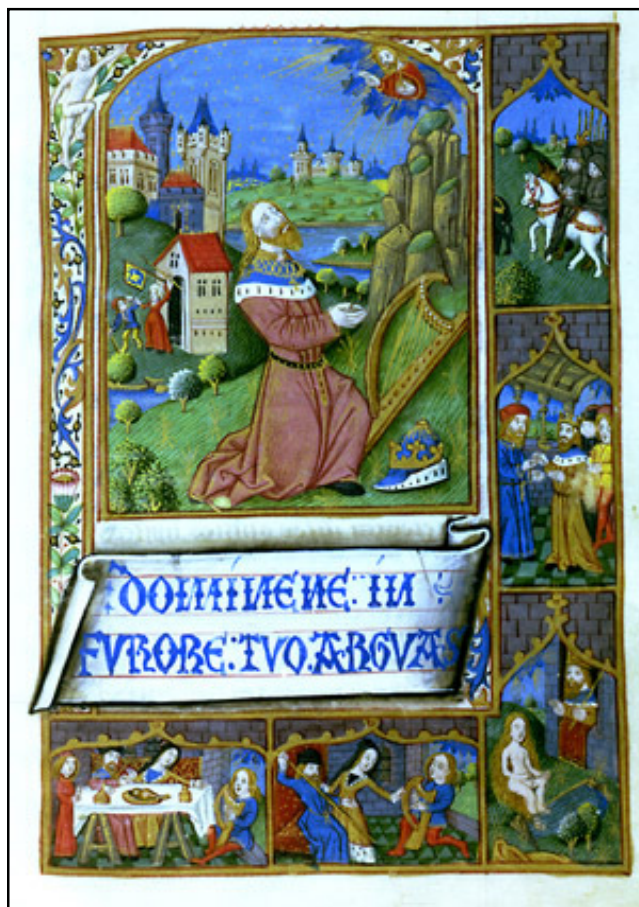 DOMINENE: IN
FURORE: TUO. ARGUAS